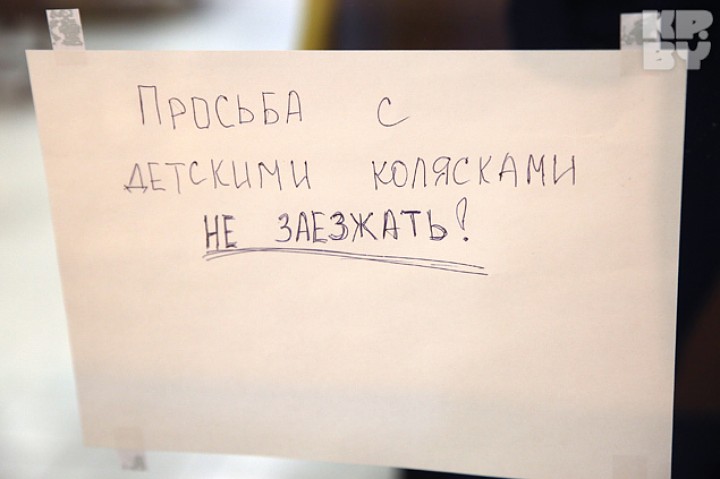 KP.
BY
ПРОСЬБА С
ДЕТСКИМИ КОЛЯСКАМИ
НЕ ЗАЕЗЖАТЬ!